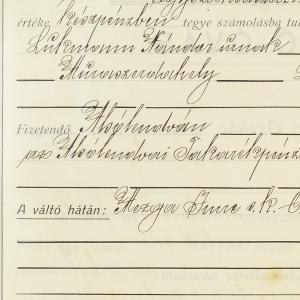 értéke Készpénzben tegye számolásba
Lukmann Nándor urnak
Muraszerdahely
Fizetendő Alsólendván
az Alsólendvai Takarékpénz
A váltó hátán: Mezga Imre s.k.